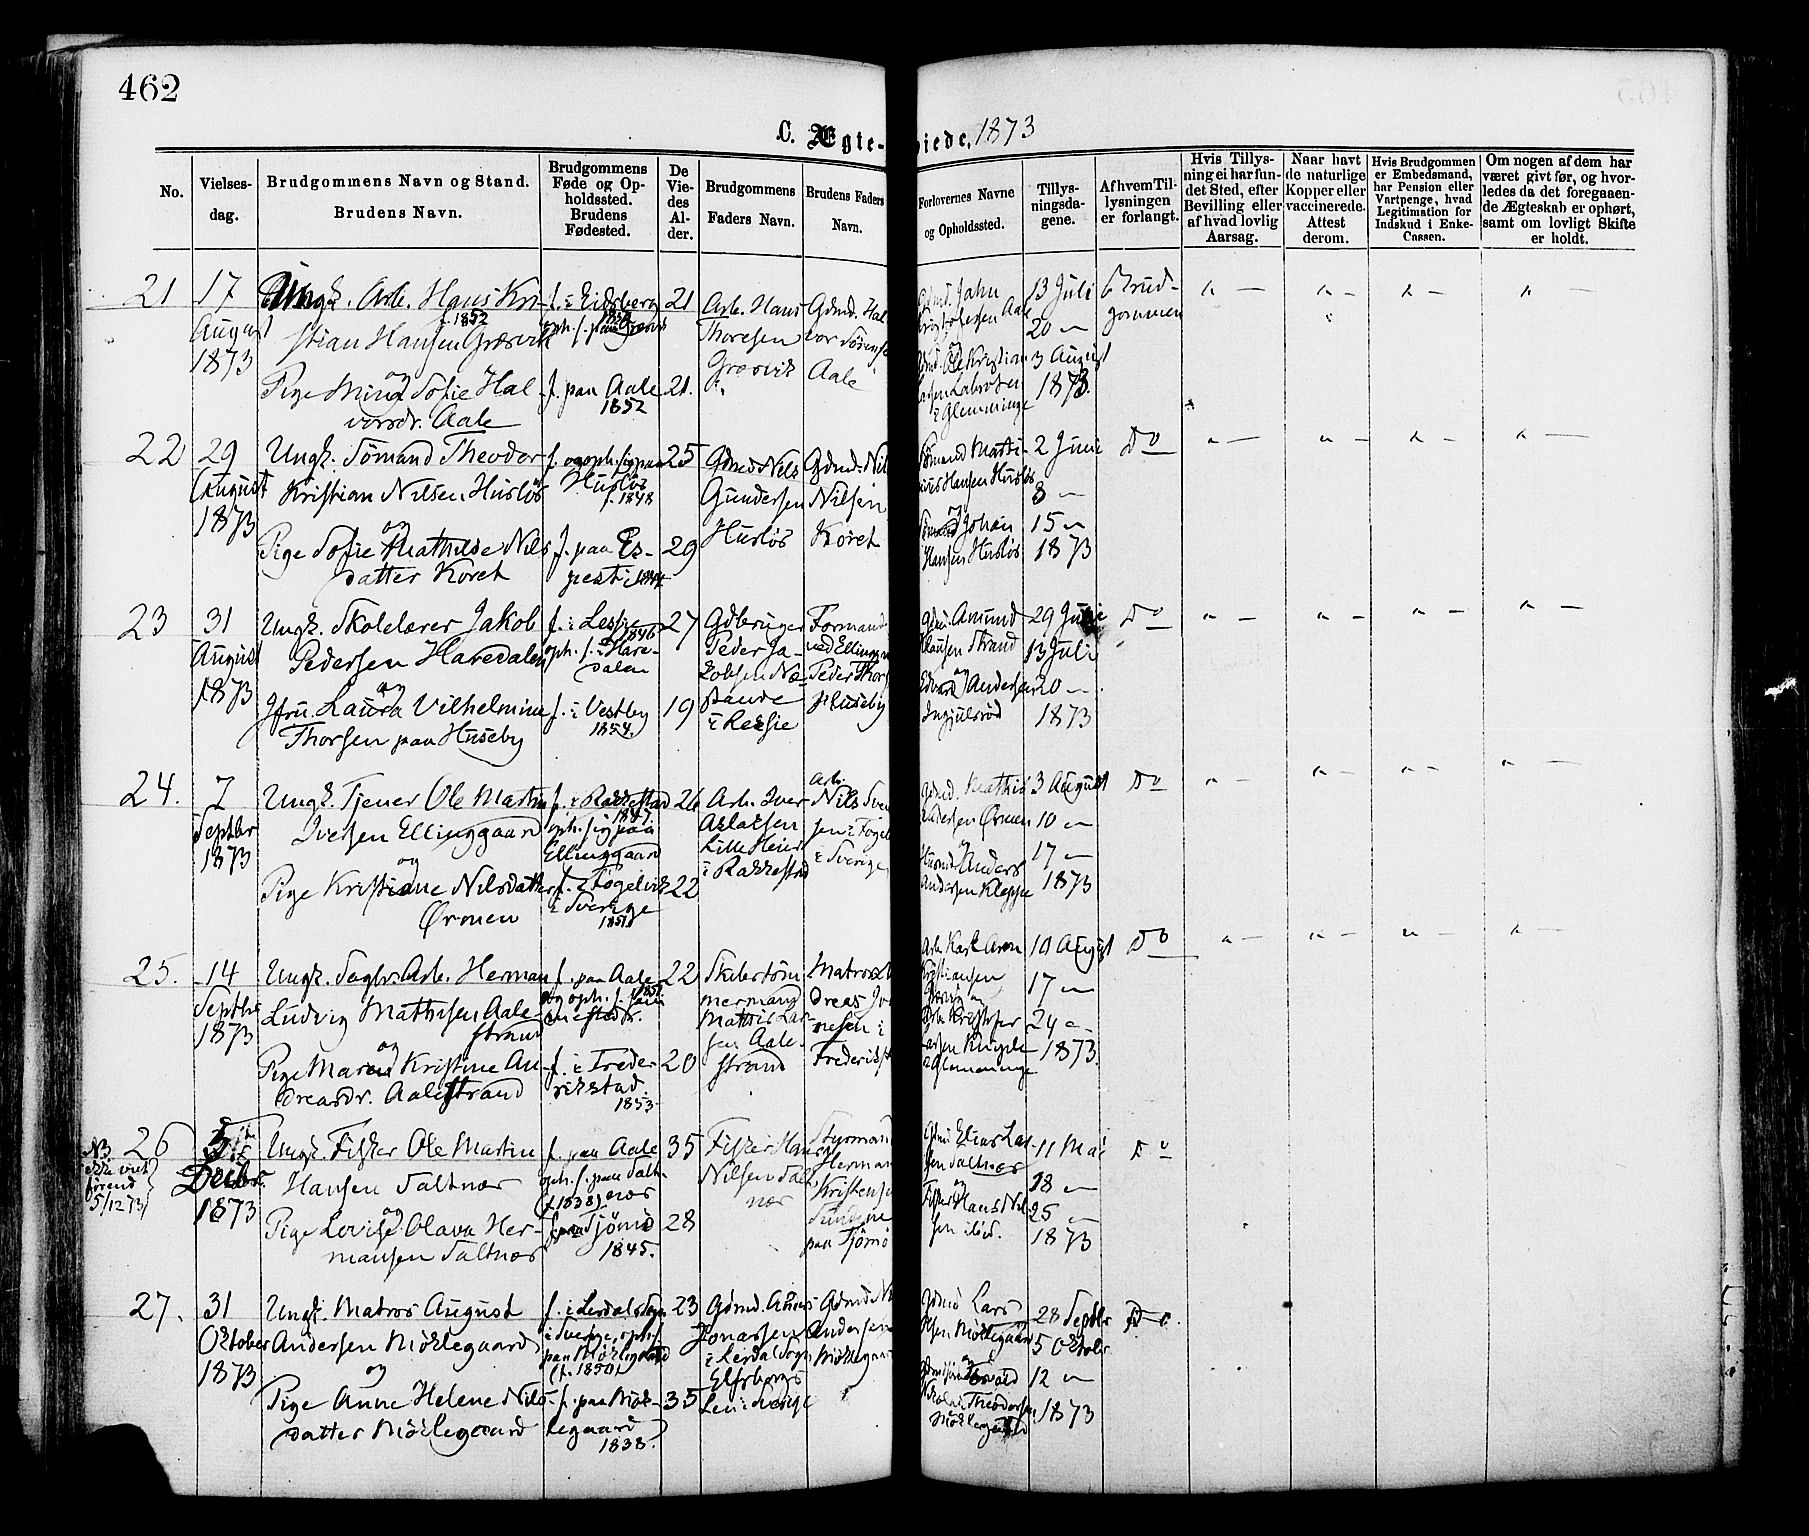 462
C. Ægte-viede, 1873
No.
Vielses-
dag.
Brudgommens Navn og Stand.
Brudens Navn.
Brudgommens
Føde og Op-
holdssted.
Brudens
Fødested.
De
Vie-
des
Al-
der.
Brudgommens
Faders Navn.
Brudens Faders
Navn.
Forlovernes Navne
og Opholdssted.
Tillys-
ningsda-
gene.
Af hvem Til-
lysningen
er forlangt.
Hvis Tillys-
ning ei har fun-
det Sted, efter
Bevilling eller
af hvad lovlig
Aarsag.
Naar havt
de naturlige
Kopper eller
vaccinerede.
Attest
derom.
Hvis Brudgommen
er Embedsmand,
har Pension eller
Vartpenge, hvad
Legitimation for
Indskud i Enke-
Cassen.
Om nogen af dem har
været givt før, og hvor-
ledes da det foregaaen-
de Ægteskab er ophørt,
samt om lovligt Skifte
er holdt.
21
17
August
1873
Ungk. Arb. Hans Kri-
f. 1852
stian Hansen Græsvik
og
Pige Mina Sofie Hal
vorsdr. Aale
f. i Eidsberg
oph. s. paa Græsvik
f. paa Aale
1852
21
21.
Arb. Hans
Thoresen
Græsvik
Gdmd. Hal
vor Sørens
Aale
Gdmd. Jahn
Kristofersen Aale
og
Ole Kristian
Larsen
i Glemminge
13 Juli
20 "
3 August
1873.
Brud-
gommen
" — " — " — " —
22
29
August
1873
Ungk. Sømand Theodor
Kristian Nilsen Husløs
og
Pige Sofie Mathilde Nils
datter Koret
f. og oph. sig paa
Husløs
f. 1848
f. paa Es-
pest i 1844
25
29
Gdmd Nels
Gundersen
Husløs
Gdmd. Nil
Nilsen
Koret
Sømand Marti-
nius Hansen Husløs
og
Sømand Johan
Hansen Husløs
2 Juni
8 "
15 "
1873
Do
" — " — " — " —
23
31
August
1873
Ungk. Skolelærer Jakob
Pedersen Haredalen
og
Jfru. Laura Vilhelmine
Thorsen paa Huseby
f. i Lesje
1846
oph. s. i Hare-
dalen
f. i Vestby
1854.
27
19
Gdbruger
Peder Ja-
kobsen Næ-
stande
i Lesje
Formand
ved Ellinggaa
Peder Thors
Huseby
Gdm. Amund
Clausen Strand
og
Edvard Andersen
Ingjulsrød
29 Juni
13 Juli
20 "
1873
Do
" — " — " — " —
24.
7
Septbr
1873
Ungk. Tjener Ole Martin
Iversen Ellinggaard
og
Pige Kristiane Nilsdatter
Ørmen
f. i Rakkestad
1847.
oph. sig paa
Ellinggaard
f. i Fogelvik
i Sverige
1851.
26
22
Arb. Iver
Aslaksen
Lille Heier
i Rakkestad
Arb.
Nils Sven
sen i Fogel
i Sverige
Gdmd. Mathis
Andersen Ørmen
og
Husmd Anders
Andersen Kleppe
3 August
10 "
17 "
1873
Do
" — " — " — " —
25.
14
Septbr
1873
Ungk. Sagbr. Arb. Herman
Ludvig Mathisen Aale-
strand
og
Pige Maren Kristine An-
dreasdr. Aalestrand
f. paa Aale
1851
og oph. s. sam
mesteds.
f. i Frede-
rikstad
1853
22
20
Skibstøm
mermand
Mathis Lar-
sen Aale-
strand
Matros An
dreas
nesen i
Frederikst
Arb. Karl Aron
Kristiansen
og
Arb. Kristofer
Larsen
i Glemminge
10 August
17 "
24 "
1873.
Do
" — " — " — " —
NB.
ikke viet
førend
5/12 73
26
5te
Decbr.
1873
Ungk. Fisker Ole Martin
Hansen Saltnæs
og
Pige Lovise Olava Her-
mansen Saltnæs
f. paa Aale
oph. s. paa Salt-
(f. 1838) næs
f. paa Tjømø
1845.
35
28
Fisker Hans
Nilsen Salt
næs
Styrmand
Herman
Kristense
Sundene
paa Tjømø
Gdmd Elias Lar-
sen Saltnæs
og
Fisker Hans Nil
sen ibid.
11 Mai
18 "
25 "
1873
Do
27.
31
Oktober
1873
Ungk. Matros August
Andersen Møklegaard
og
Pige Anne Helene Nils-
datter Møklegaard
f. i Lerdals Sogn
i Sverige, oph.
paa Møklegaard
(f. 1850)
f. paa Møk-
legaard
1838.
23
35
Gdmd. Anders
Jonassen
i Lerdal Sogn
Elfsborgs
Len i Sverige
Gdmd N
Andersen
Møklegaar
Gdmd Lars
Olsen Møklegaard
og
Theodorsen
Møklegaard
28 Septbr
5 Oktobr
12 "
1873
Do.